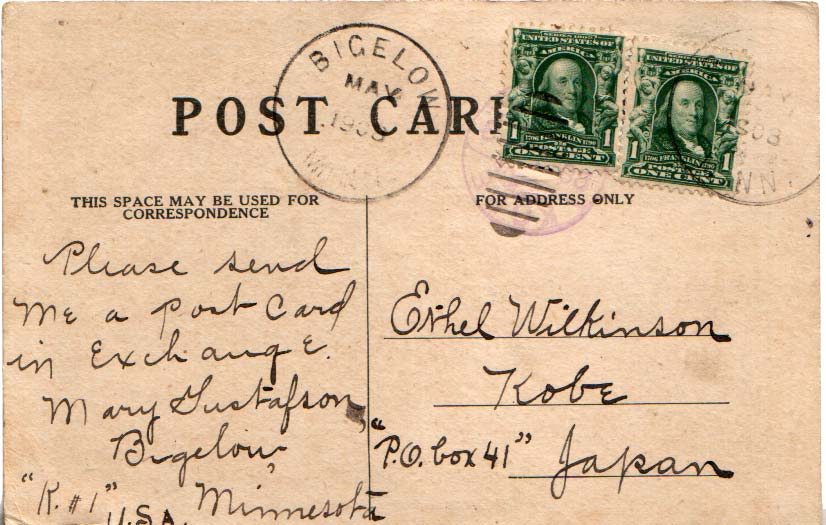 BIGELOW
MAY
1908
MINN
SERIES 1902
UNITED STATES OF
AMERICA
1 1
1706 FRANKLIN 1790
POSTAGE
ONE CENT
SERIES 1902
UNITED STATES OF
AMERICA
1 1
1706 FRANKLIN 1790
POSTAGE
ONE CENT
MAY
1908
MINN.
POST CARD
THIS SPACE MAY BE USED FOR
CORRESPONDENCE
FOR ADDRESS ONLY
Please send
me a post Card
in Exchange.
Mary Gustafson
Bigelow
"R.#1" Minnesota
U.S.A.
Ethel Wilkinson
Kobe
"P.O. box 41" Japan